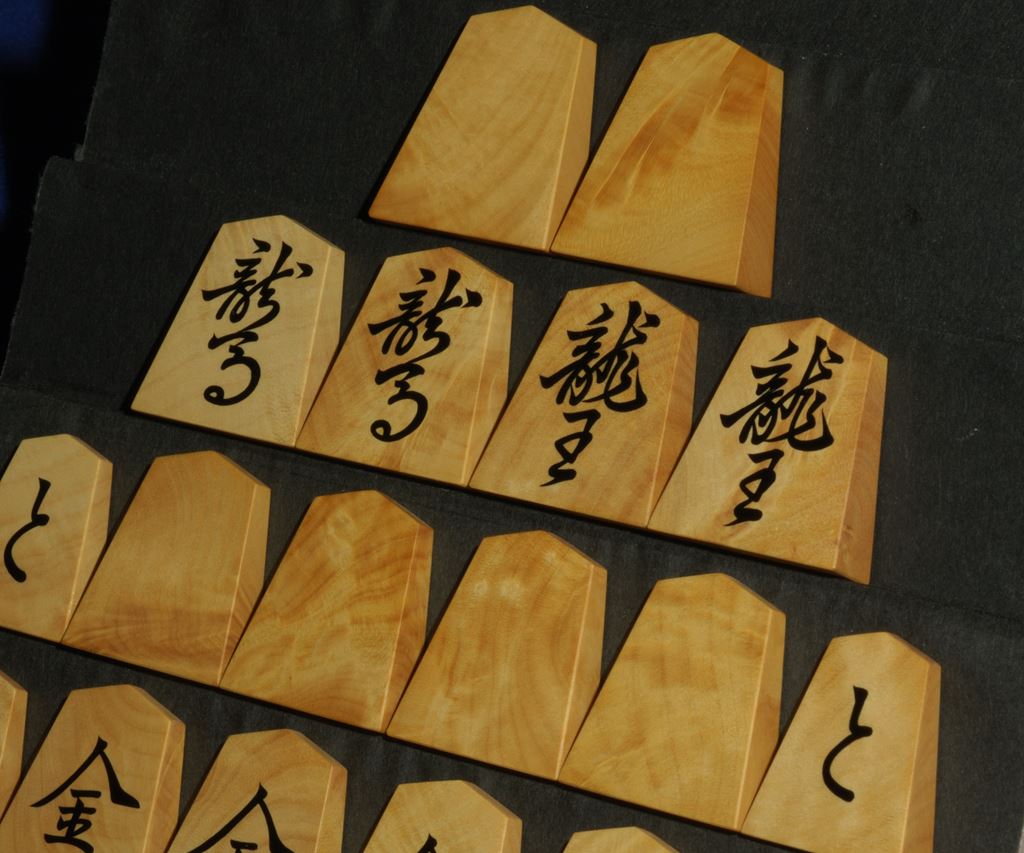 龍馬 龍馬 龍王 龍王
と と
金 金